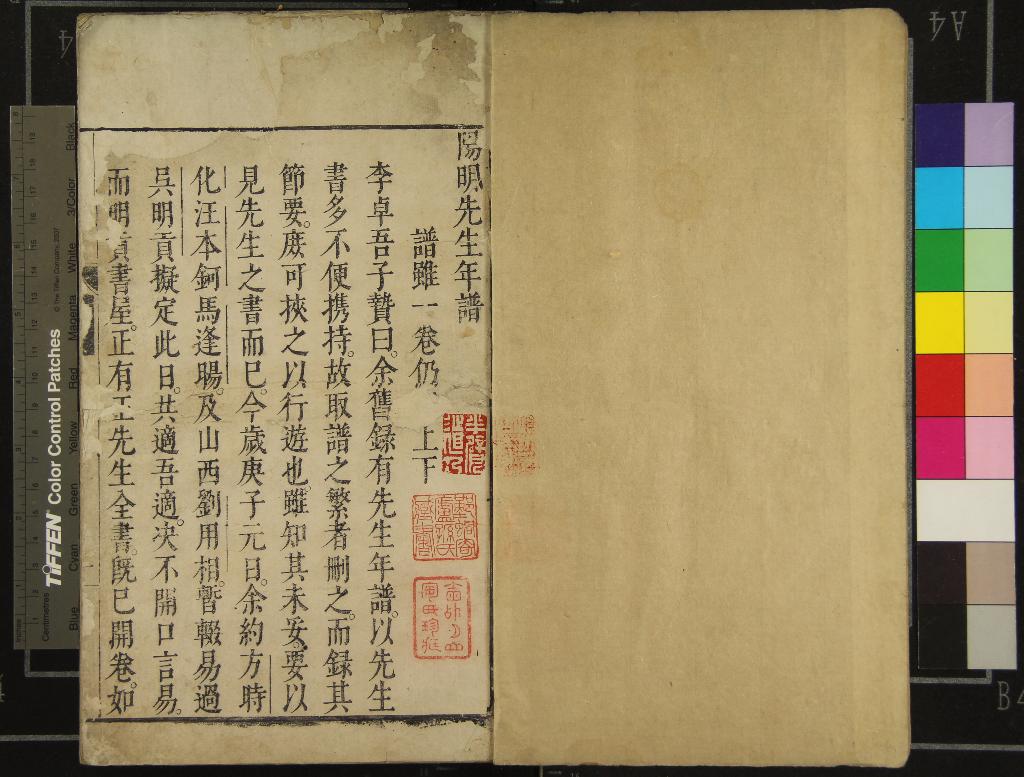 陽明先生年譜
譜雖一卷仍 上下
李卓吾子贊曰余舊錄有先生年譜以先生
書多不便携持故取譜之繁者刪之而錄其
節要庻可挾之以行遊也雖知其未妥要以
見先生之書而已今歲庚子元日余約方時
化汪本鈳馬逢暘及山西劉用相暫輟易過
吳明貢擬定此日共適吾適决不開口言易
而明貢書屋正有王先生全書旣已開卷如
TIFFEN Color Control Patches
© The Tiffen Company, 2007
Blue Cyan Green Yellow Red Magenta White 3/Color Black
Centimetres
Inches
A4
B4